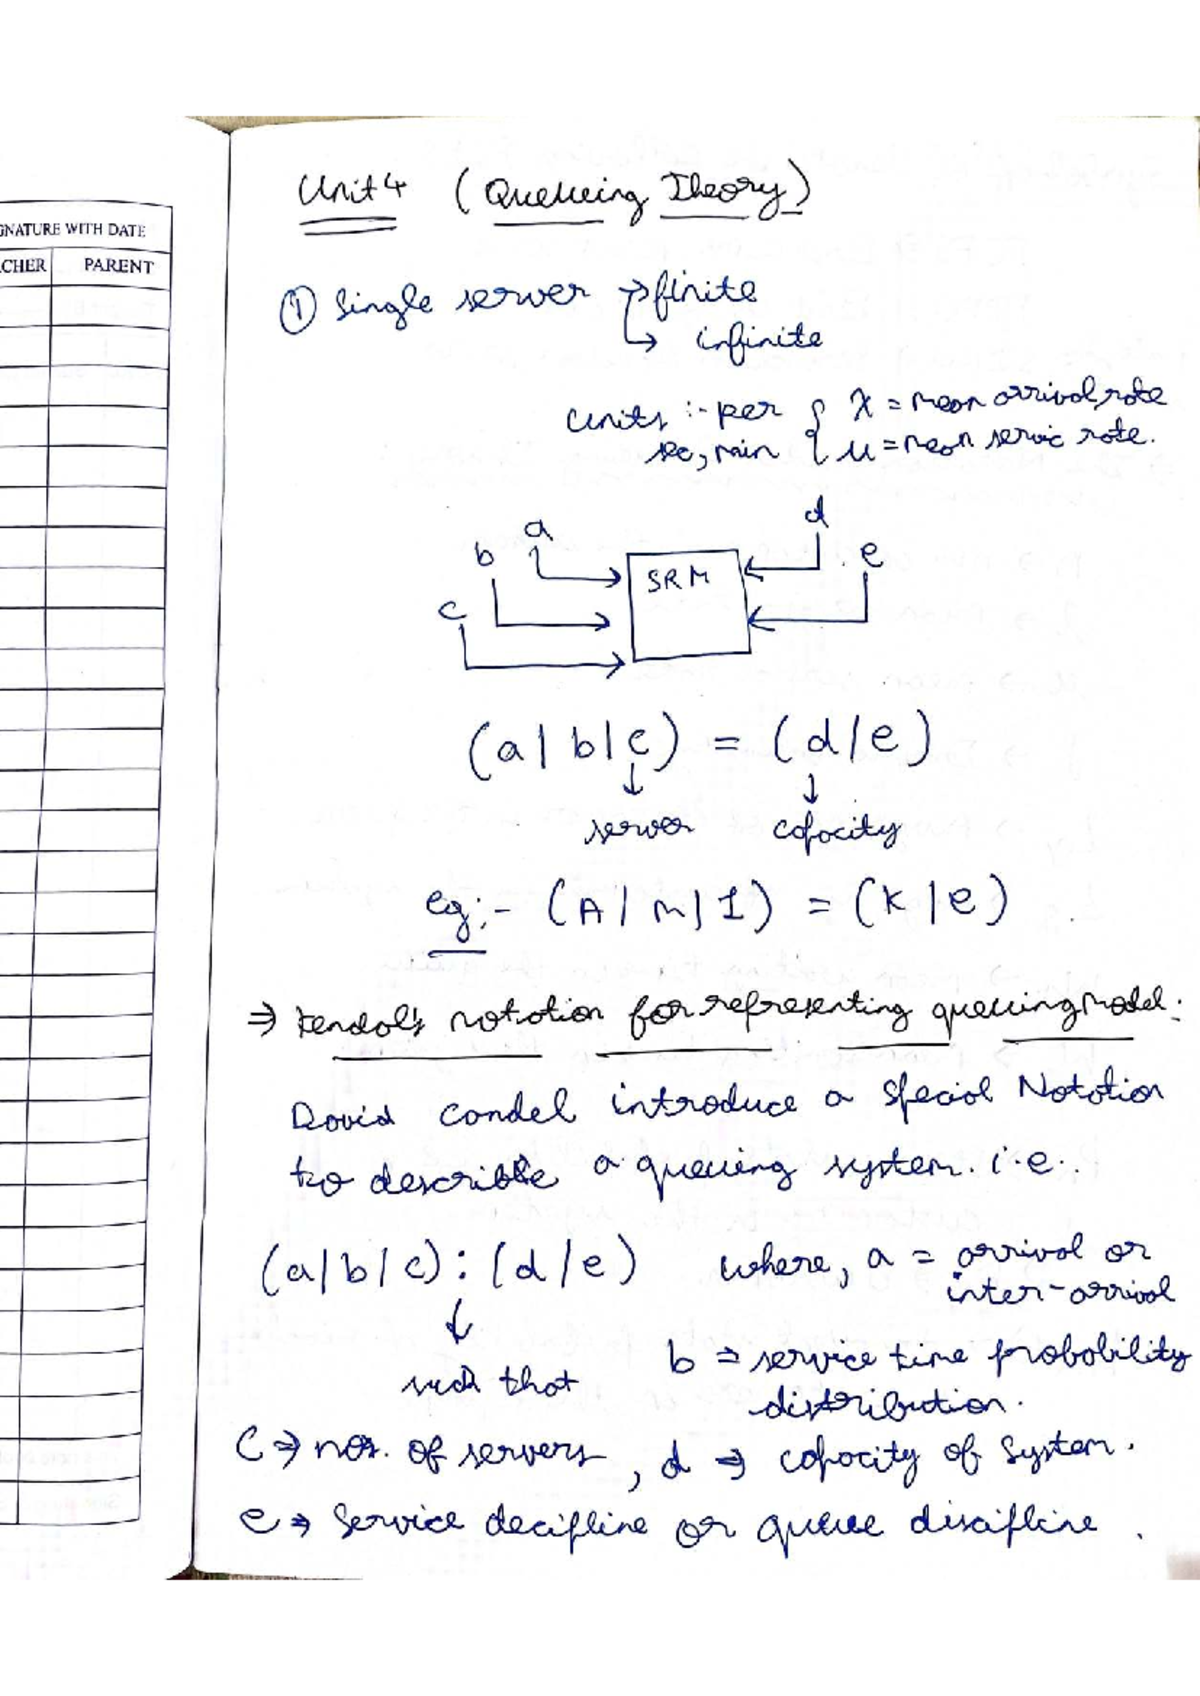 GNATURE WITH DATE
CHER PARENT
Unit 4 (Queueing Theory)
① Single server → finite
↳ infinite
units :- per { λ = mean arrival rate
sec, min { μ = mean servic rate.
a
b
c
d
e
SRM
(a/b/c) = (d/e)
↓ ↓
server capacity
eg:- (A/M/1) = (K/e)
⇒ Kendal's notation for representing queuing Model.
David Candel introduce a special Notation
to describle a queuing system. i.e.
(a/b/c) : (d/e) where, a = arrival or
inter-arrival
↓
such that
b ⇒ service time probability
distribution.
C ⇒ nos. of servers, d ⇒ capacity of System.
e ⇒ Service decipline or queue discipline.